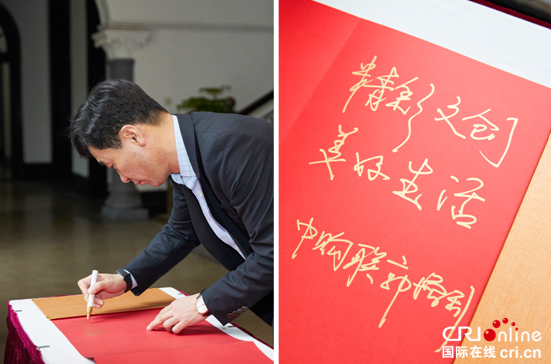 精彩文创
美好生活
中购联郭增利
CRIonline
国际在线 cri.cn